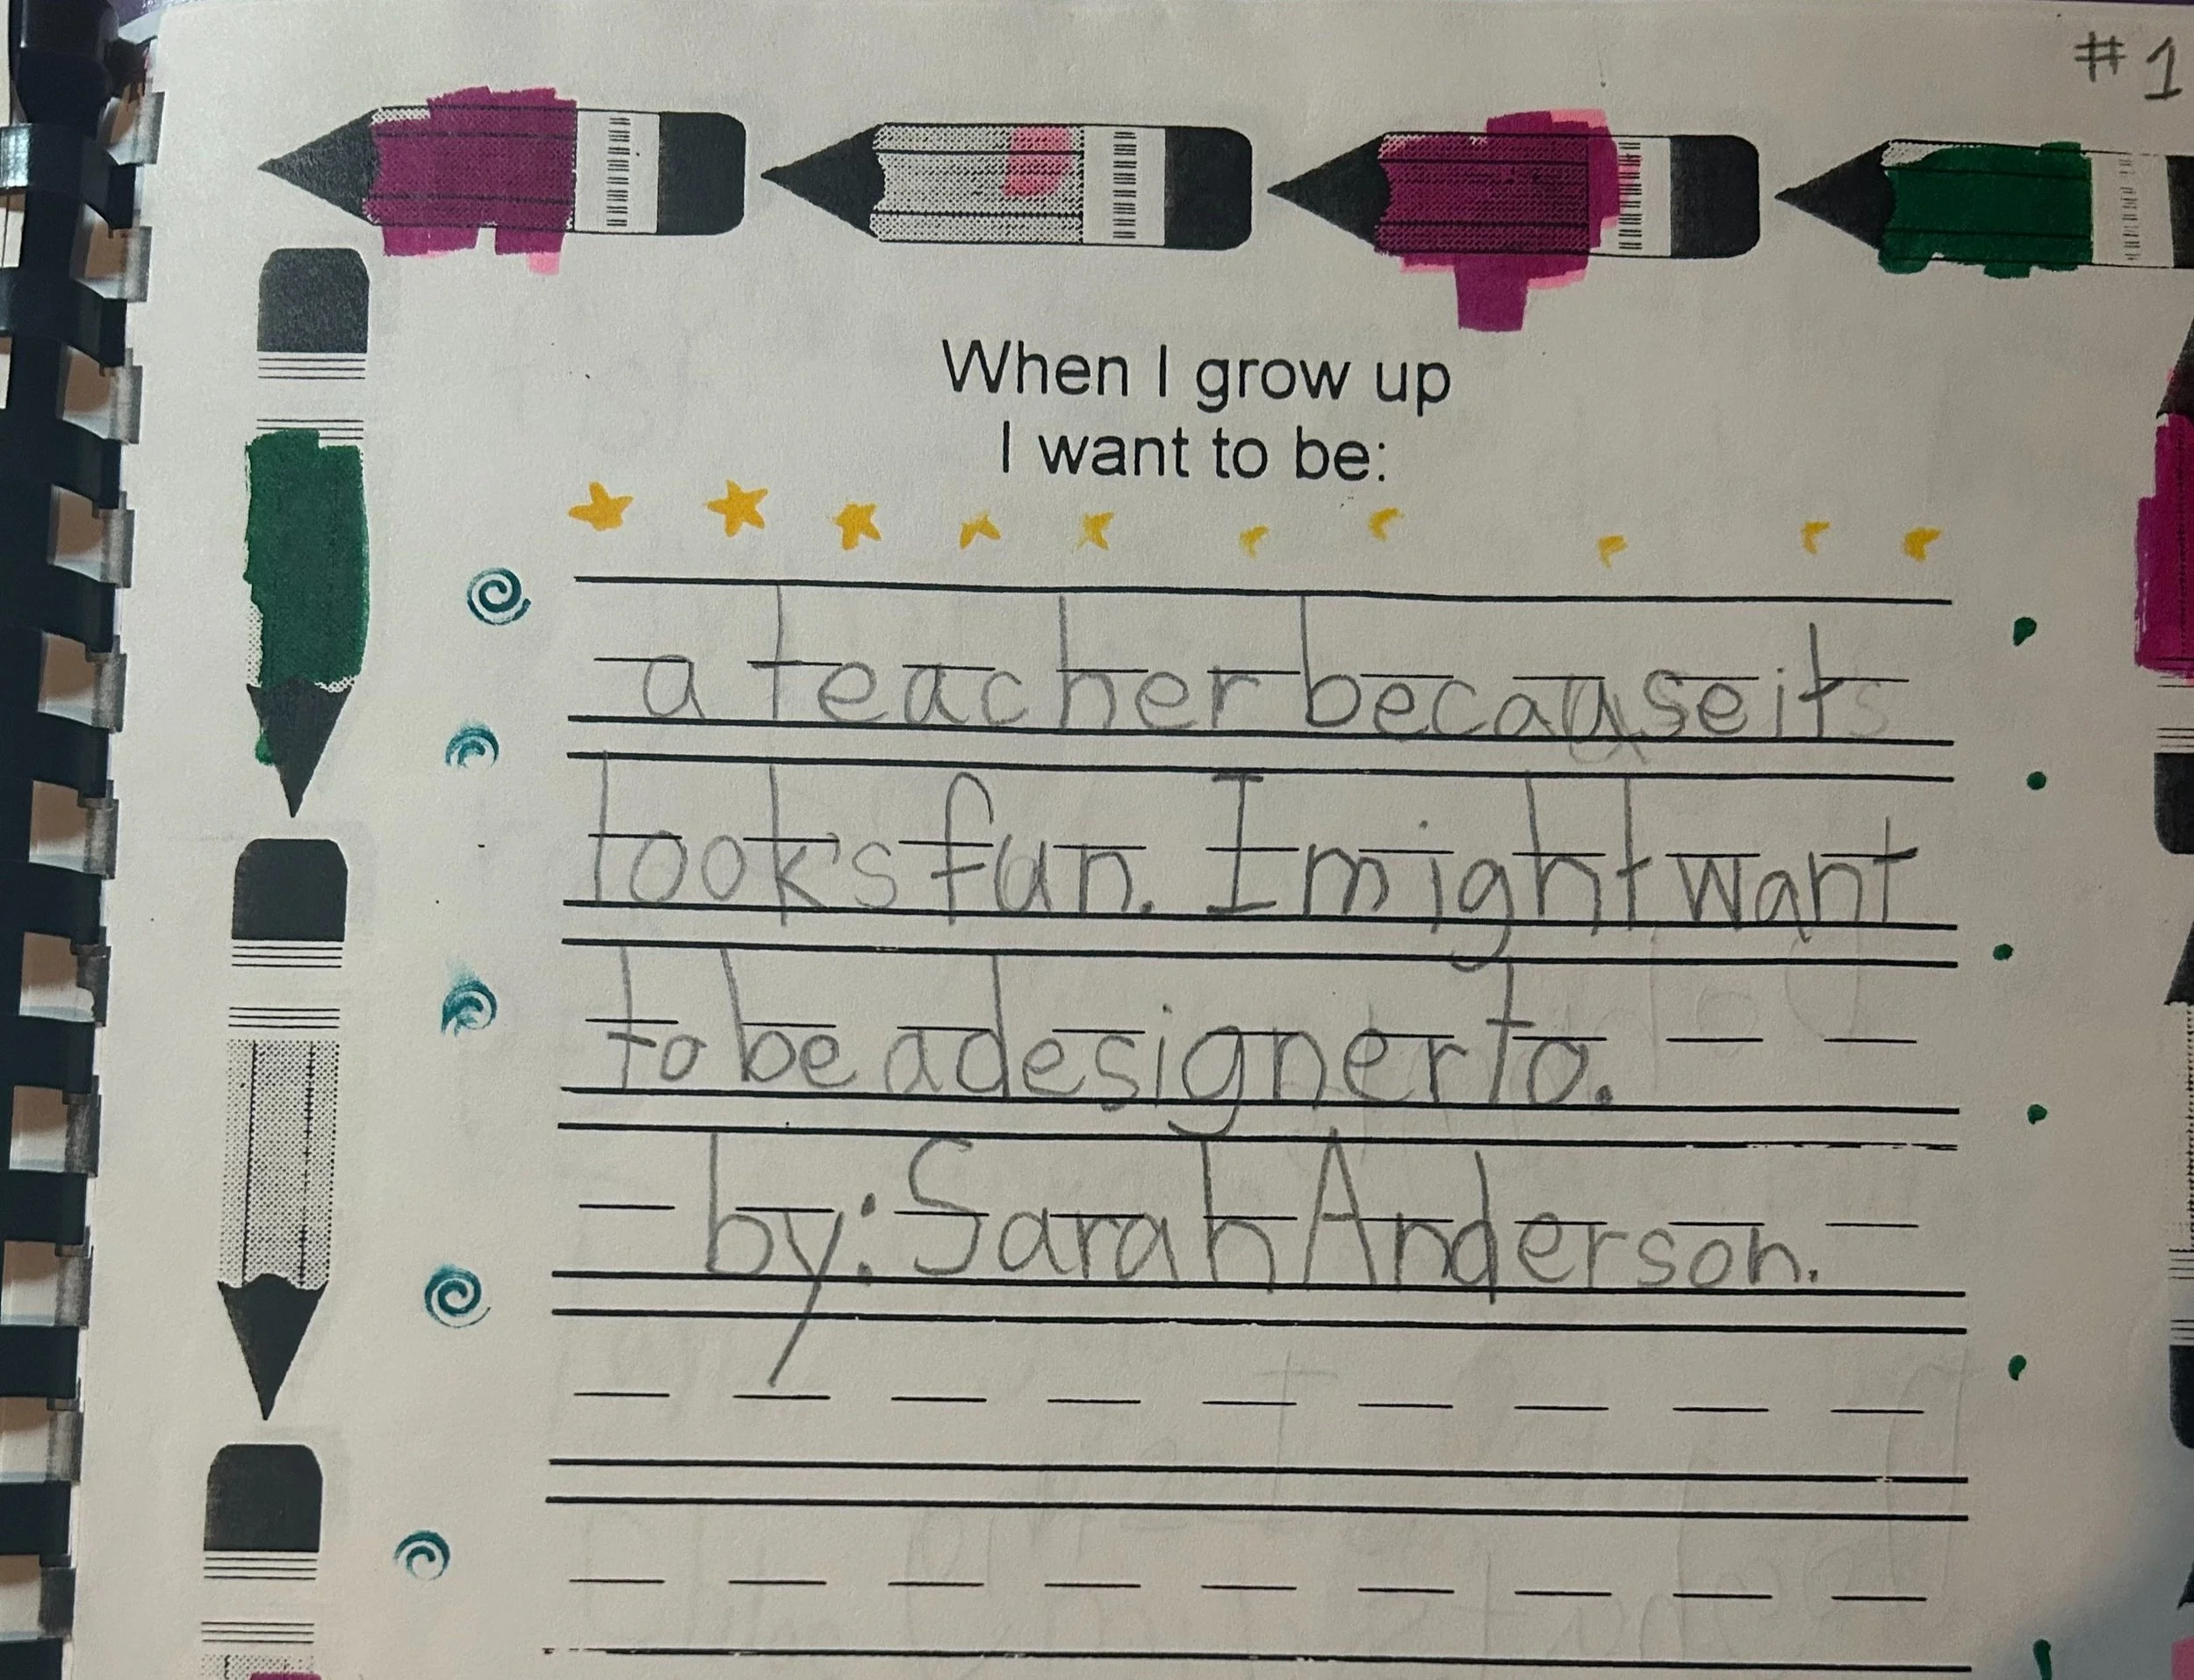 #1
When I grow up
I want to be:
a teacher because it
looks fun. I might want
to be a designer to.
by: Sarah Anderson.